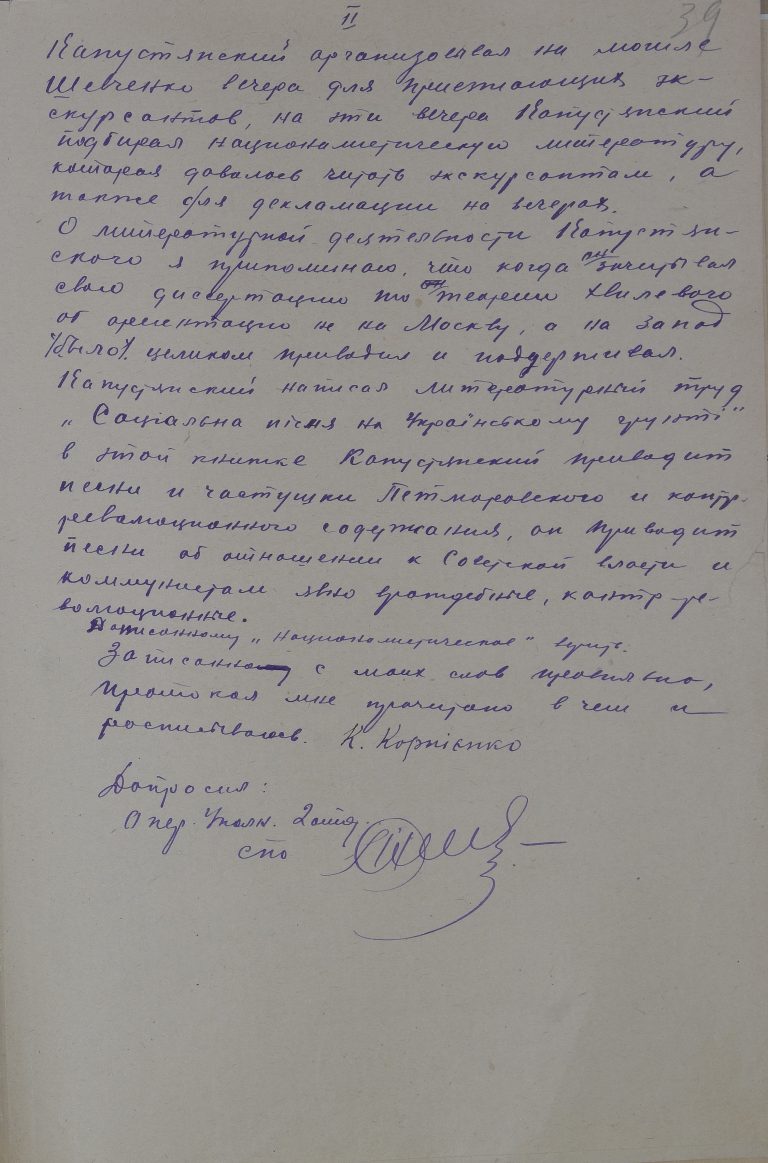 II
39
Капустянский организовывал на могиле
Шевченко вечера для приезжающих эк-
скурсантов, на эти вечера Капустянский
подбирал националистическую литературу,
которая давалась читать экскурсантам, а
также для декламации на вечерах.
О литературной деятельности Капустян-
ского я припоминаю, что когда он зачитывал
свою диссертацию то он теорию Хвилевого
об ориентации не на Москву, а на Запад
целиком приводил и поддерживал.
Капустянский написал литературный труд
„Соціальна пісня на Українському грунті"
в этой книжке Капустянский приводит
песни и частушки Петлюровского и контр-
революционного содержания, он приводит
песни об отношении к Советской власти и
коммунистам явно враждебные, контр-ре-
волюционные.
Дописанному „националистическое" верить.
Записанному с моих слов правильно,
протокол мне прочитано в чем и
росписываюсь. К. Корпієнко
Допросил:
Опер. Уполн. 2 отд.
СПО